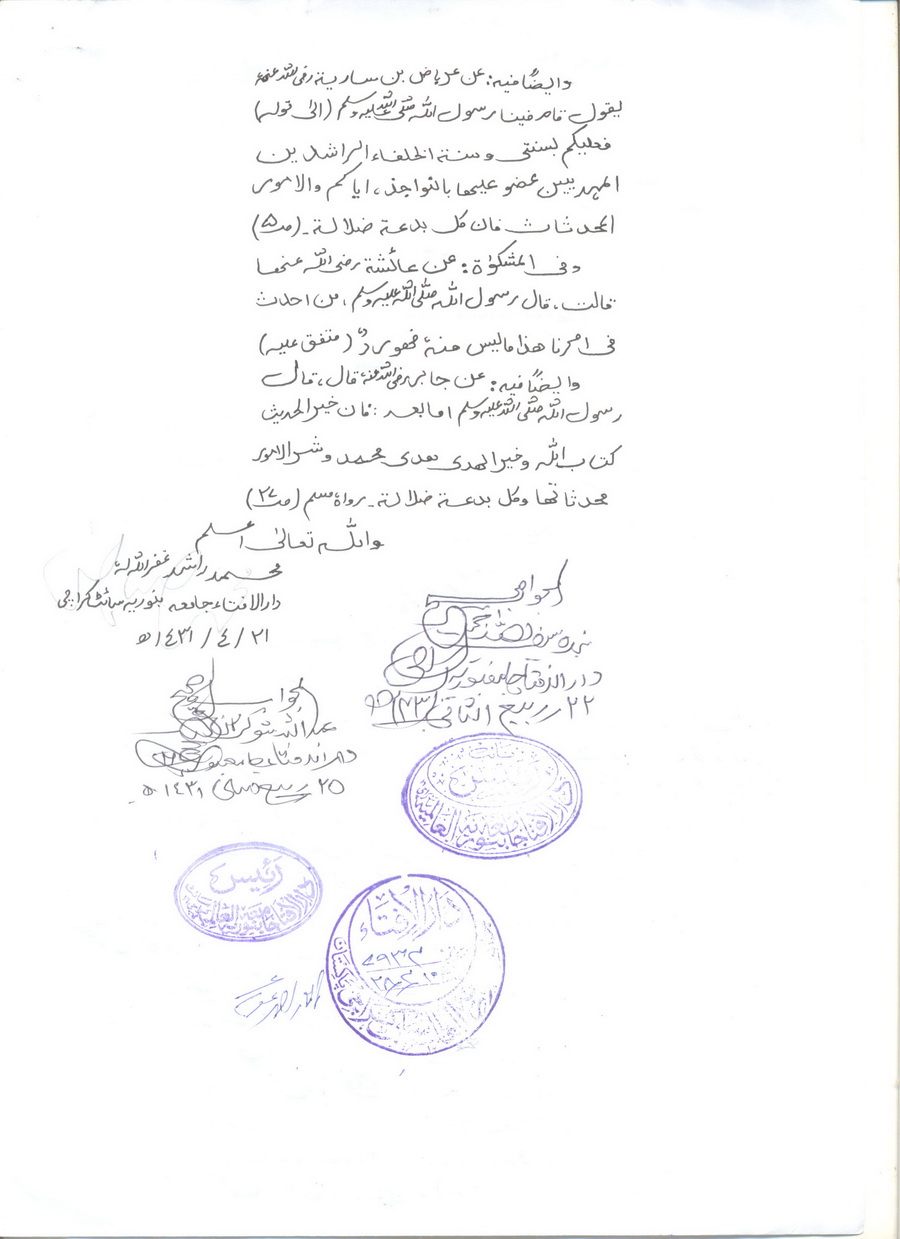 وایضًا فیہ: عن عرباض بن ساریۃ رضی اللہ عنہ
یقول قام فینا رسول اللہ صلی اللہ علیہ وسلم (الیٰ قولہ)
فعلیکم بسنتی وسنۃ الخلفاء الراشدین
المہدیین عضو علیھا بالنواجذ، ایاکم والامور
المحدثات فان کل بدعۃ ضلالۃ۔ (صـ۵)
وفی المشکوٰۃ: عن عائشۃ رضی اللہ عنھا
قالت، قال رسول اللہ صلی اللہ علیہ وسلم، من احدث
فی امرنا ھذا مالیس منہ فھو ردٌ (متفق علیہ)
وایضًا فیہ: عن جابر رضی اللہ عنہ قال، قال
رسول اللہ صلی اللہ علیہ وسلم اما بعد: فان خیر الحدیث
کتاب اللہ وخیر الھدی ھدی محمد وشر الامور
محدثاتھا وکل بدعۃ ضلالۃ۔ رواہ مسلم (صـ۲۷)
واللہ تعالیٰ اعلم
محمد راشد غفراللہ لہٗ
دارالافتاء جامعہ بنوریہ سائٹ کراچی
۲۱/۴/۱۴۳۱ھ
الجواب صحیح
دارالافتاء جامعہ بنوریہ
۲۲ ربیع الثانی ۱۴۳۱ھ
الجواب صحیح
عبداللہ شوکت
دارالافتاء جامعہ بنوریہ
۲۵ ربیع الثانی ۱۴۳۱ھ
دارالافتاء جامعہ بنوریہ العالمیہ
رئیس
دارالافتاء جامعہ بنوریہ العالمیہ
دارالافتاء